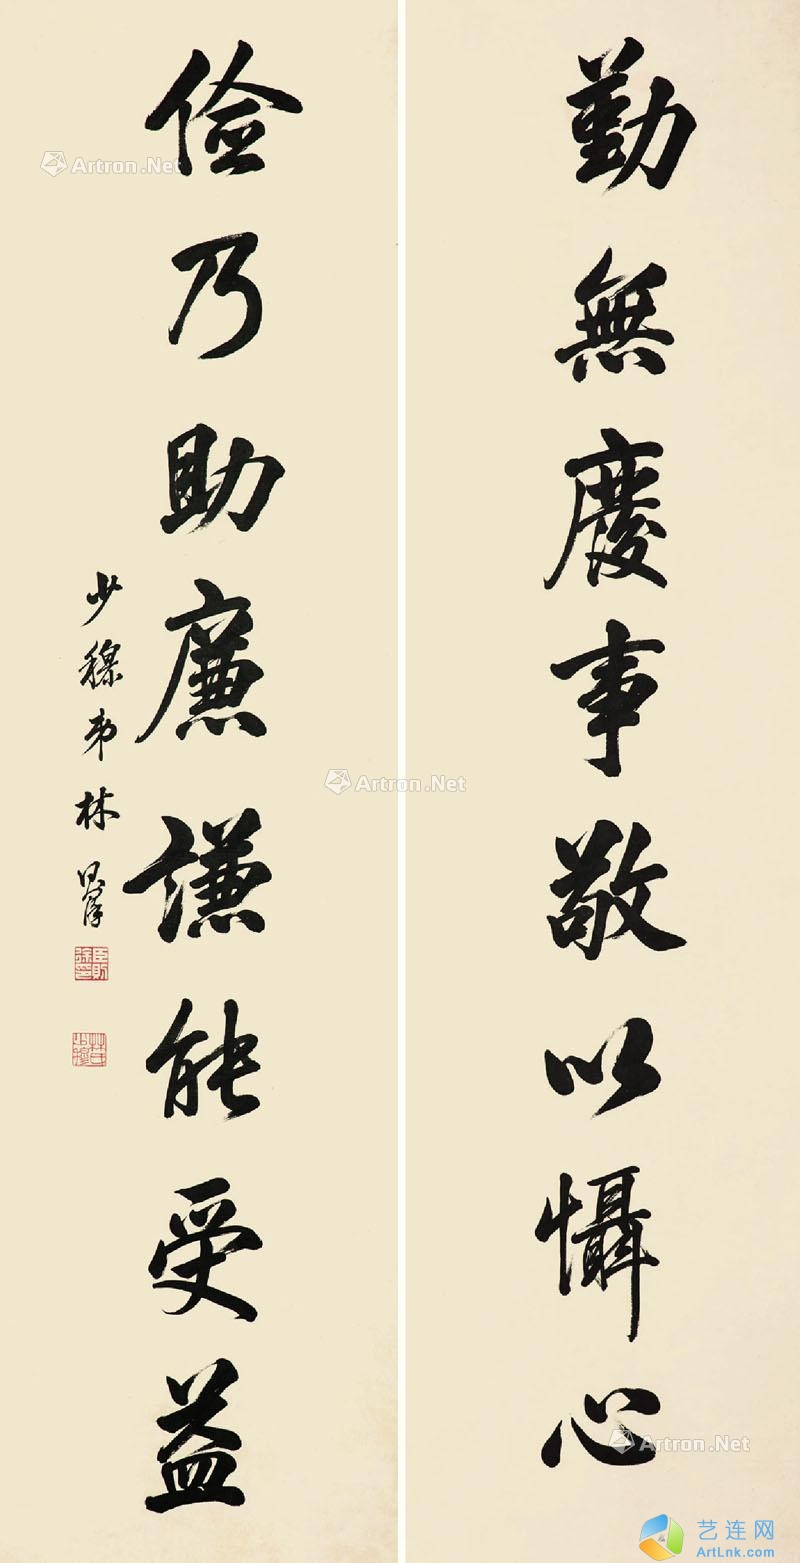 勤無廢事敬以懾心
儉乃助廉謙能受益
少穆弟林則徐
臣則徐印
林氏少穆
Artron.Net
Artron.Net
Artron.Net
艺连网
ArtLnk.com